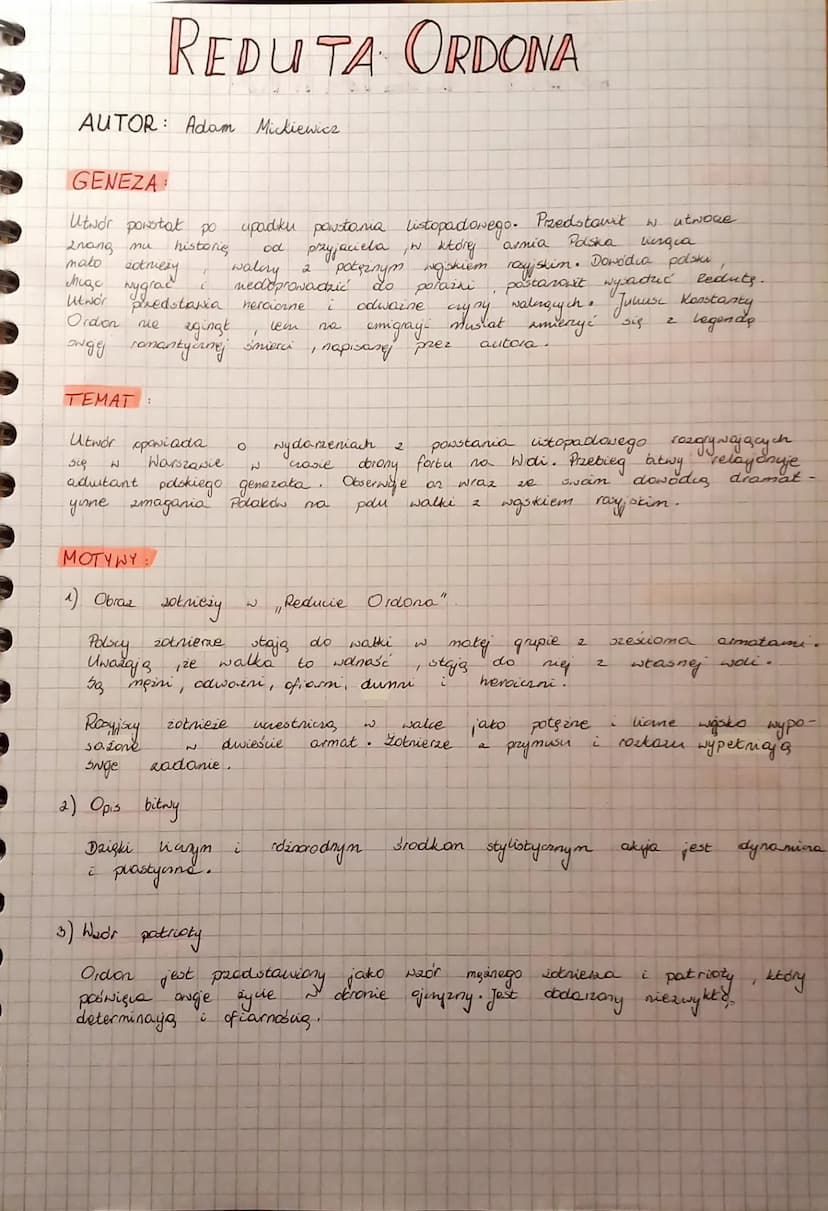 REDUTA ORDONA
AUTOR: Adam Mickiewicz
GENEZA:
Utwór powstał po upadku powstania listopadowego. Przedstawił w utworze
znaną mu historię od przyjaciela, w której armia Polska licząca
mało żołnieży, walczy z potężnym wojskiem rosyjskim. Dowódca polski,
chcąc wygrać i niedoprowadzić do porażki, postanowił wysadzić Redutę.
Utwór przedstawia heroiczne i odważne czyny walczących. Juliusz Konstanty
Ordon nie zginął, lecz na emigracji musiał zmierzyć się z legendą
swojej romantycznej śmierci, napisanej przez autora.
TEMAT:
Utwór opowiada o wydarzeniach z powstania listopadowego rozgrywających
się w Warszawie w czasie obrony fortu na Woli. Przebieg bitwy relacjonuje
adiutant polskiego generała. Obserwuje on wraz ze swoim dowódcą dramat-
yczne zmagania Polaków na polu walki z wojskiem rosyjskim.
MOTYWY:
1) Obraz żołnieży w „Reducie Ordona"
Polscy żołnierze stają do walki w małej grupie z sześcioma armatami.
Uważają, że walka to wolność, stają do niej z własnej woli.
Są mężni, odważni, ofiarni, dumni i heroiczni.
Rosyjscy żołnieże uczestniczą w walce jako potężne i liczne wojsko wypo-
sażone w dwieście armat. Żołnierze z przymusu i rozkazu wypełniają
swoje zadanie.
2) Opis bitwy
Dzięki licznym i różnorodnym środkom stylistycznym akcja jest dynamiczna
i plastyczna.
3) Wzór patrioty
Ordon jest przedstawiony jako wzór mężnego żołnierza i patrioty, który
poświęca swoje życie w obronie ojczyzny. Jest obdarzony niezwykłą
determinacją i ofiarnością.